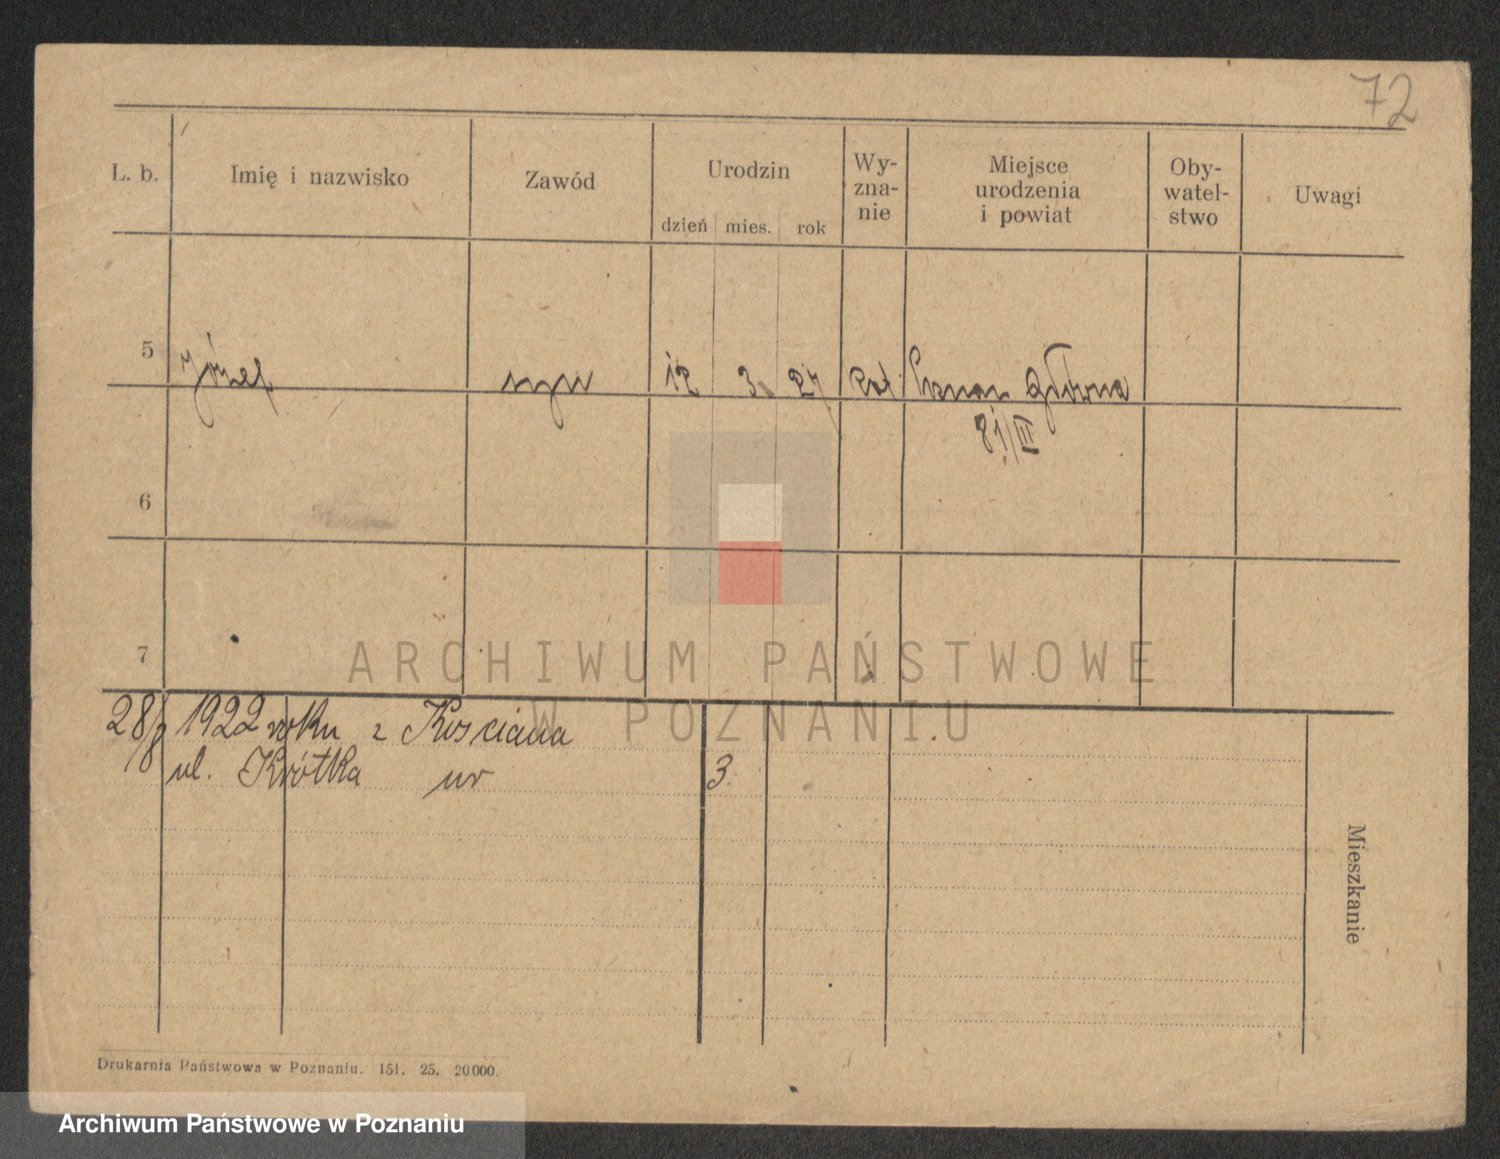 72
L. b. Imię i nazwisko Zawód Urodzin Wy-zna-nie Miejsce urodzenia i powiat Oby-watel-stwo Uwagi
dzień mies. rok
5 Józef syn 12 3. 27 kat Główna
81/III
6
7
ARCHIWUM PAŃSTWOWE
W POZNANIU
28/8 1922 roku z Kościana
ul. Krótka nr 3.
Mieszkanie
Drukarnia Państwowa w Poznaniu. 151. 25. 20.000.
Archiwum Państwowe w Poznaniu